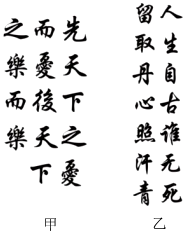 先天下之憂
而憂後天下
之樂而樂
甲
人生自古谁无死
留取丹心照汗青
乙